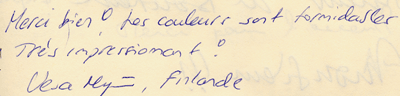 Merci bien! Les couleurs sont formidables
Très impressionant!
Vesa, Finlande